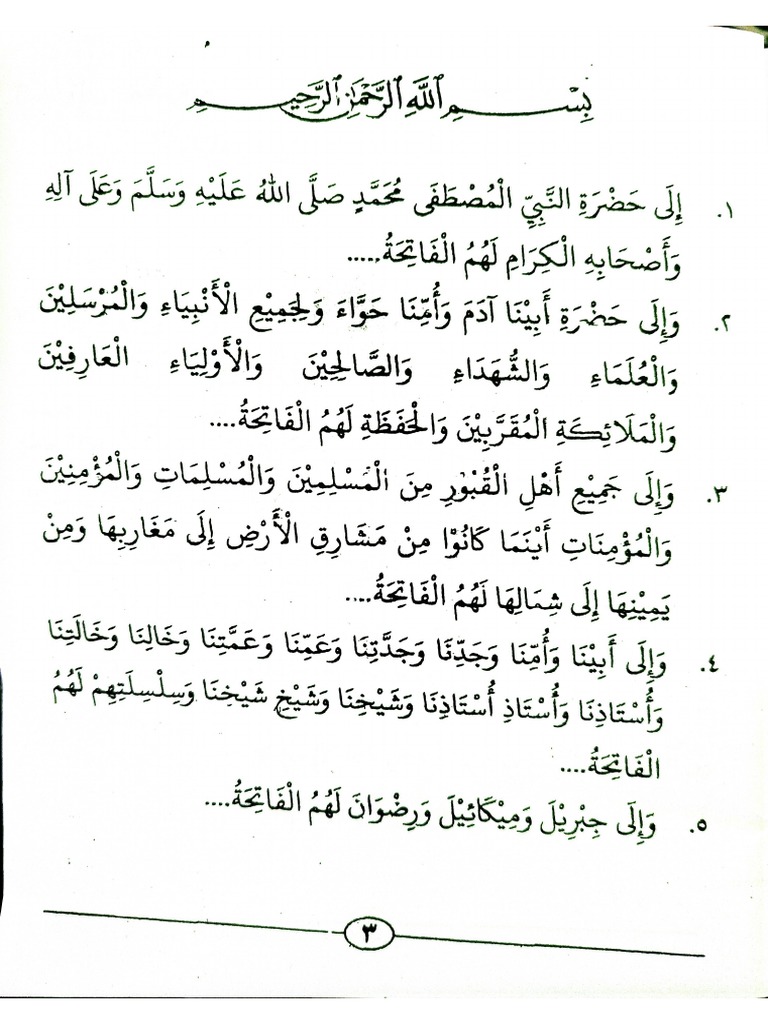 بِسْمِ اللَّهِ الرَّحْمَٰنِ الرَّحِيمِ
١. إِلَى حَضْرَةِ النَّبِيِّ الْمُصْطَفَى مُحَمَّدٍ صَلَّى اللهُ عَلَيْهِ وَسَلَّمَ وَعَلَى آلِهِ
وَأَصْحَابِهِ الْكِرَامِ لَهُمُ الْفَاتِحَةُ.....
٢. وَإِلَى حَضْرَةِ أَبِيْنَا آدَمَ وَأُمِّنَا حَوَّاءَ وَلِجَمِيْعِ الْأَنْبِيَاءِ وَالْمُرْسَلِيْنَ
وَالْعُلَمَاءِ وَالشُّهَدَاءِ وَالصَّالِحِيْنَ وَالْأَوْلِيَاءِ الْعَارِفِيْنَ
وَالْمَلَائِكَةِ الْمُقَرَّبِيْنَ وَالْحَفَظَةِ لَهُمُ الْفَاتِحَةُ....
٣. وَإِلَى جَمِيْعِ أَهْلِ الْقُبُوْرِ مِنَ الْمُسْلِمِيْنَ وَالْمُسْلِمَاتِ وَالْمُؤْمِنِيْنَ
وَالْمُؤْمِنَاتِ أَيْنَمَا كَانُوْا مِنْ مَشَارِقِ الْأَرْضِ إِلَى مَغَارِبِهَا وَمِنْ
يَمِيْنِهَا إِلَى شِمَالِهَا لَهُمُ الْفَاتِحَةُ....
٤. وَإِلَى أَبِيْنَا وَأُمِّنَا وَجَدِّنَا وَجَدَّتِنَا وَعَمِّنَا وَعَمَّتِنَا وَخَالِنَا وَخَالَتِنَا
وَأُسْتَاذِنَا وَأُسْتَاذِ أُسْتَاذِنَا وَشَيْخِنَا وَشَيْخِ شَيْخِنَا وَسِلْسِلَتِهِمْ لَهُمُ
الْفَاتِحَةُ....
٥. وَإِلَى جِبْرِيْلَ وَمِيْكَائِيْلَ وَرِضْوَانَ لَهُمُ الْفَاتِحَةُ....
٣